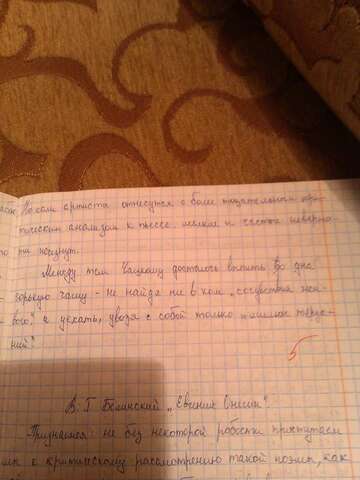 Но сам артиста отнесутся с боле тщательным кри-
тическим анализом к пьесе. мелкие и частые неверно-
то ти исчезнут.
Между тем Чацкому досталось выпить до дна
горькую чашу - не найдя ни в ком „сочувствия жи-
вого", и уехать, увозя с собой только миллион терзо-
ний".
5
В. Г Белинский „Евгений Онегин".
Признаемся: не без некоторой робости приступаем
мы к критическому рассмотрению такой поэмы, как